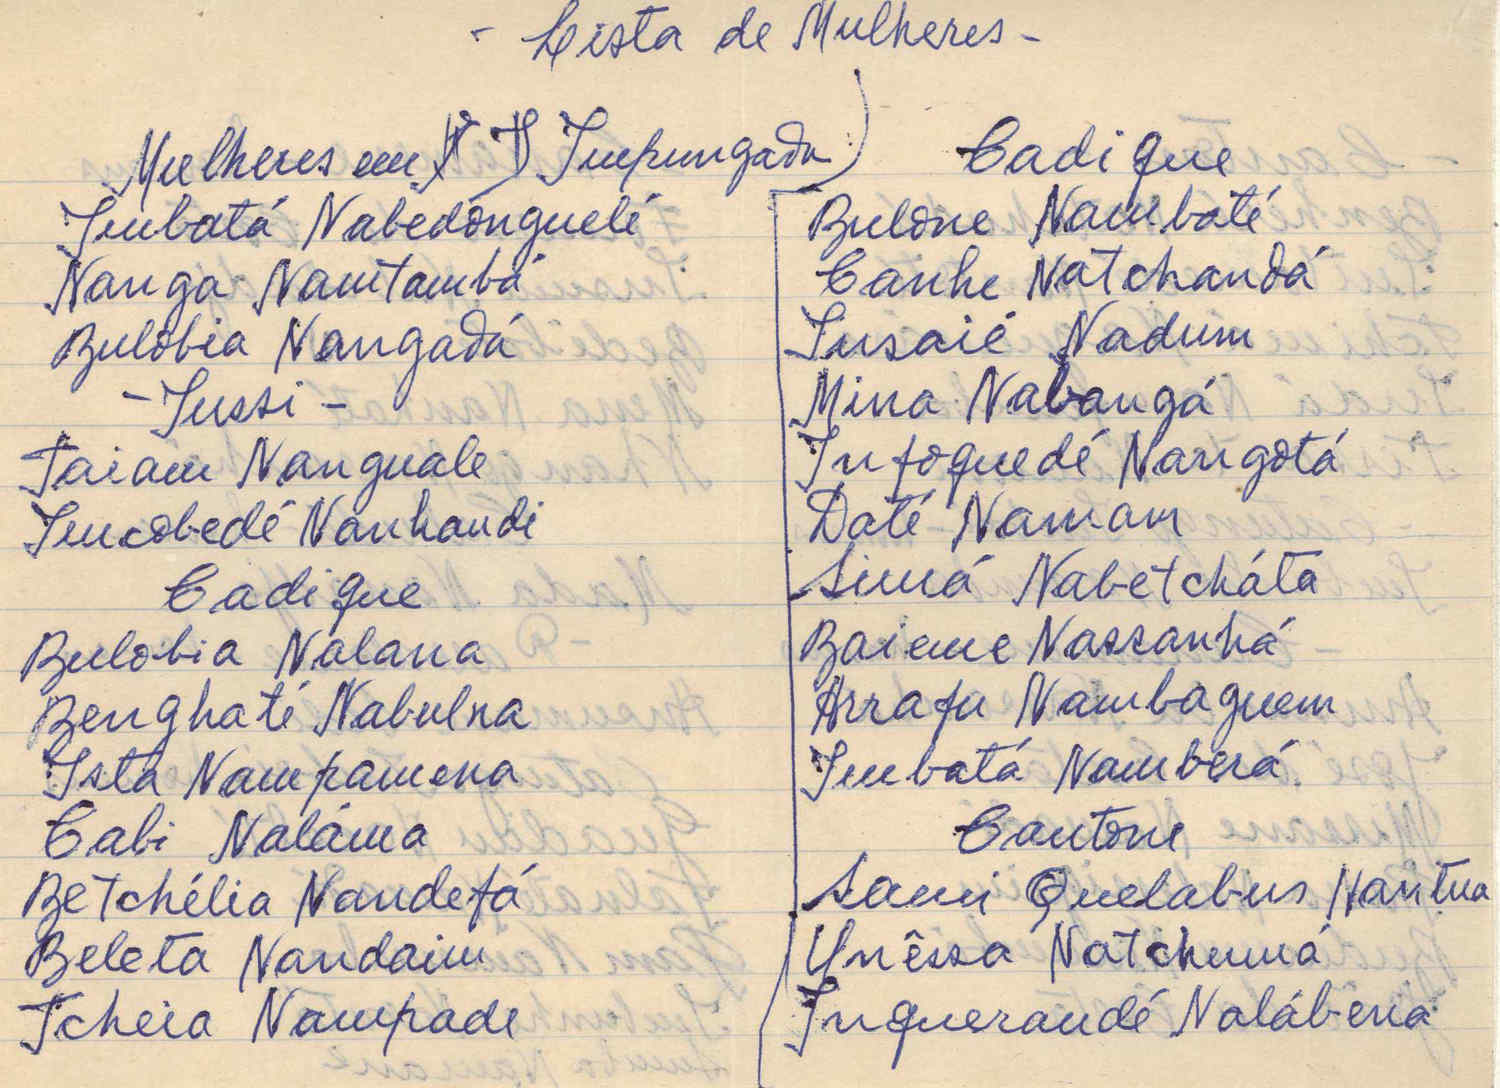 - Lista de Mulheres -
Mulheres em Impungada
Imbatá Nabedonguelé
Nanga Namtambá
Bulobia Nangadá
- Iussi -
Taiam Nanguale
Imcobedé Nanhandi
Cadique
Bulobia Nalana
Benghaté Nabulna
Ista Nampamena
Cabi Naláma
Betchélia Nandefá
Beleta Nandaim
Tcheia Nampade
Cadique
Bulone Nambaté
Canhe Natchandá
Insaié Nadum
Mina Nabangá
Infoquedé Nangotá
Daté Namam
Simá Nabetcháta
Baieme Nassanhá
Arrafu Nambaguem
Imbatá Namberá
Cantone
Sami Quelabus Nantua
Unêssa Natchumá
Inquerandé Nalábena